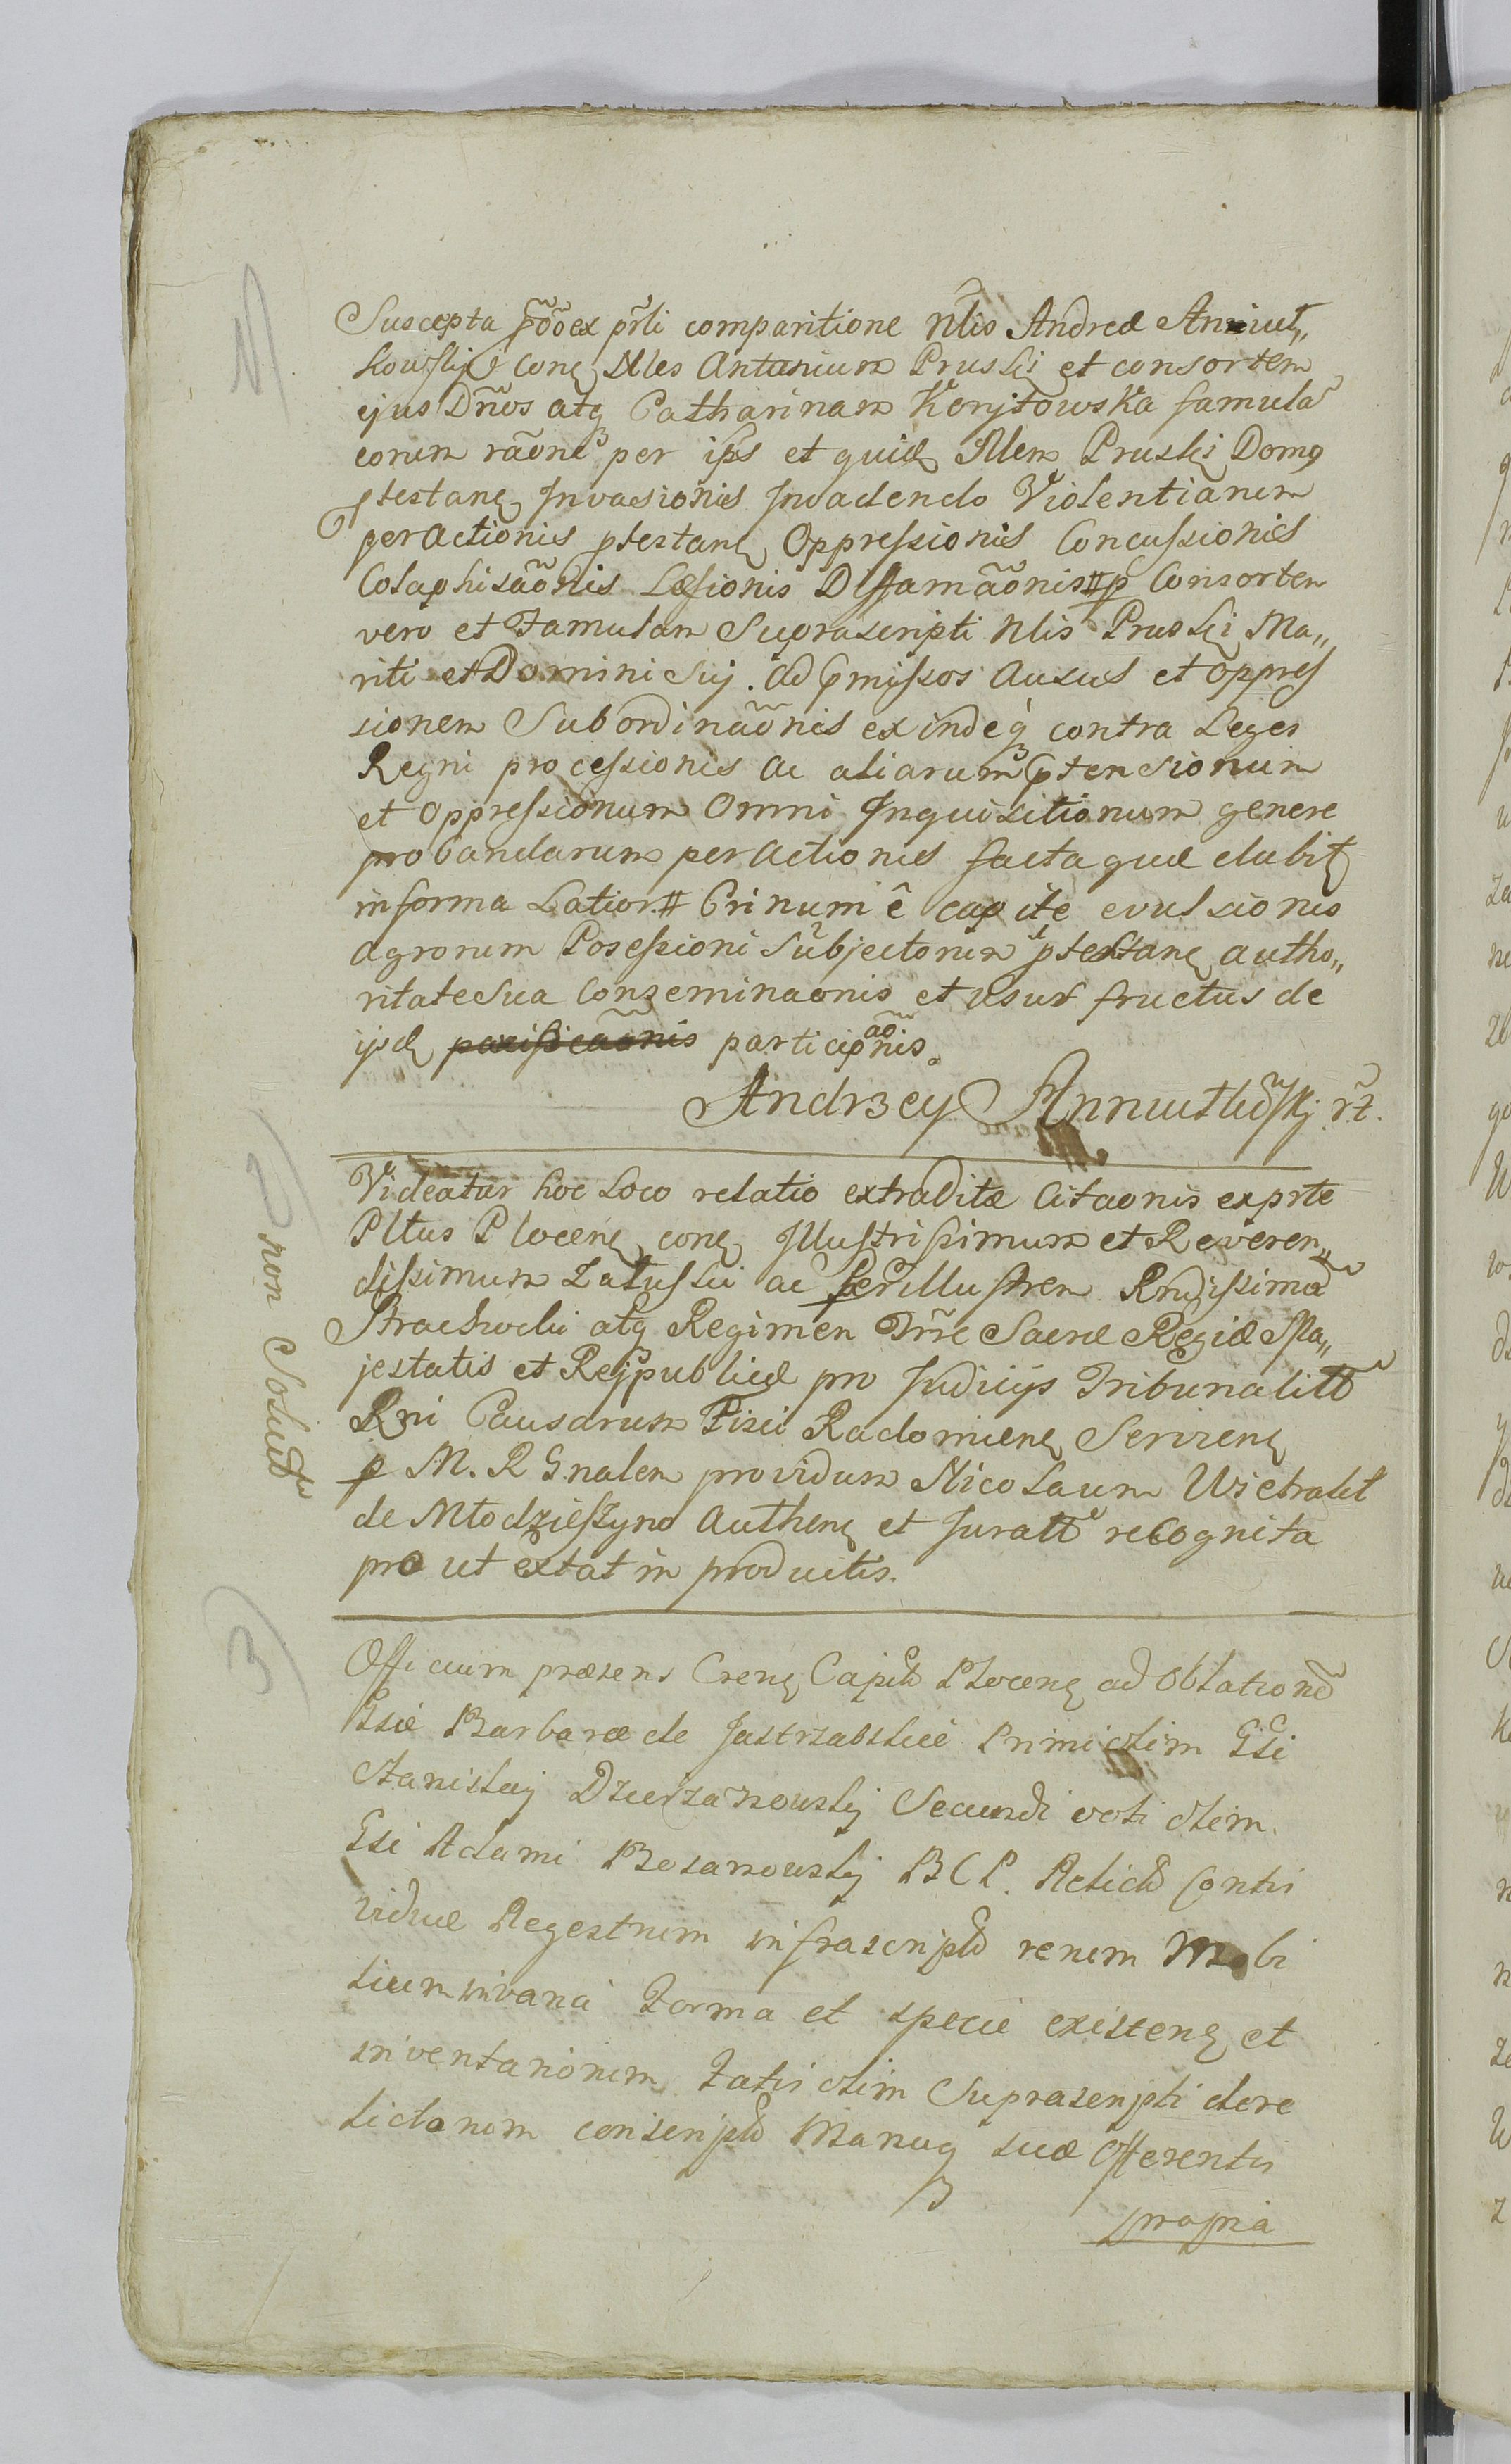 1)
Suscepta põõ ex pr̃li comparitione Nlis Andreæ Anniut„
kowskij con͠e Nles Antonium Pruski et consortem
ejus Dños atq Catharinam Korytowska famulã
eorum rãone per ips et quidẽ Nlem Pruski Domq
ptestan͠e Invasionis Invadendo Violentiarum
peractionis ptestan͠e Oppressionis Concussionis
Colaphisãõnis Læsionis Diffamãõnis # p Consortem
vero et Famulam Suprascripti Nlis Pruski Ma„
riti et Domini Sui. ad p̃missos Ausus et oppres
sionem Subordinãõnis exindeq contra Leges
Regni processionis ac aliarum ptensionum
et Oppressionum Omni Inquisitionum genere
probandarum peractionis facta quæ dabit̃
in forma Latior. # Crinum ê capite evulsionis
agrorum Posessioni Subjectorum ptestan͠e autho„
ritate Sua Conseminaonis et usus fructus de
ijsd̃ participãõnis.
Andrzey Anniutkowskj rz.
2) non Solutt
Videatur hoc Loco relatio extraditæ Citaonis ex prte
Pltus Plocen͠e con͠e Illustrissimum et Reveren„
dissimum Zaluski ac Perillustrem Rndissimũ
Strachocki atq Regimen Trr̃e Sacræ Regiæ Ma„
jestatis et Rejpublicæ pro Judicijs Tribunalitt
Rni Causarum Fisci Radomien͠e Servien͠e
p M. R Gnalem providum Nicolaum Wietrak
de Mlodzieszyno Authen͠e et Juratt recognita
pro ut extat in productis.
3)
Officium præsens Cren͠e Capitt Plocen͠e ad Oblationẽ
Gsæ Barbaræ de Jastrzabskie Primi olim Gsi
Stanislaj Dzierzanowskj Secundi voti olim
Gsi Adami Bosanowskj B C P. Relictt Contis
viduæ Regestrum infrascriptt rerum Mobi
lium in varia Forma et specie existen͠e et
inventariorum Fatis olim Suprascripti dere
lictarum conscriptt Manuq suæ Offerentis
propria